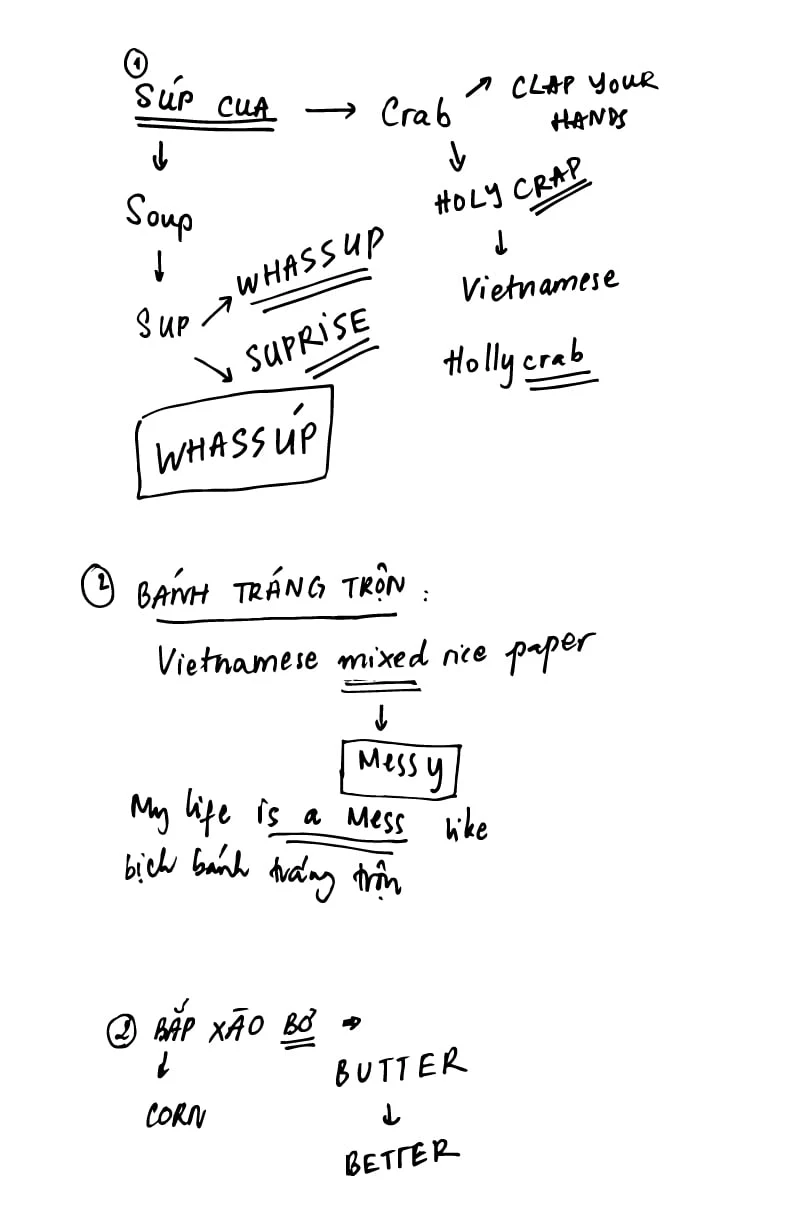 1
SÚP CUA → Crab ↗ CLAP YOUR
HANDS
↓ ↓
Soup HOLY CRAP
↓ ↓
Sup ↗ WHASSUP Vietnamese
↘ SUPRISE Holly crab
WHASSÚP
2 BÁNH TRÁNG TRỘN :
Vietnamese mixed rice paper
↓
Messy
My life is a Mess like
bịch bánh tráng trộn
2 BẮP XÀO BƠ →
↓ BUTTER
CORN ↓
BETTER